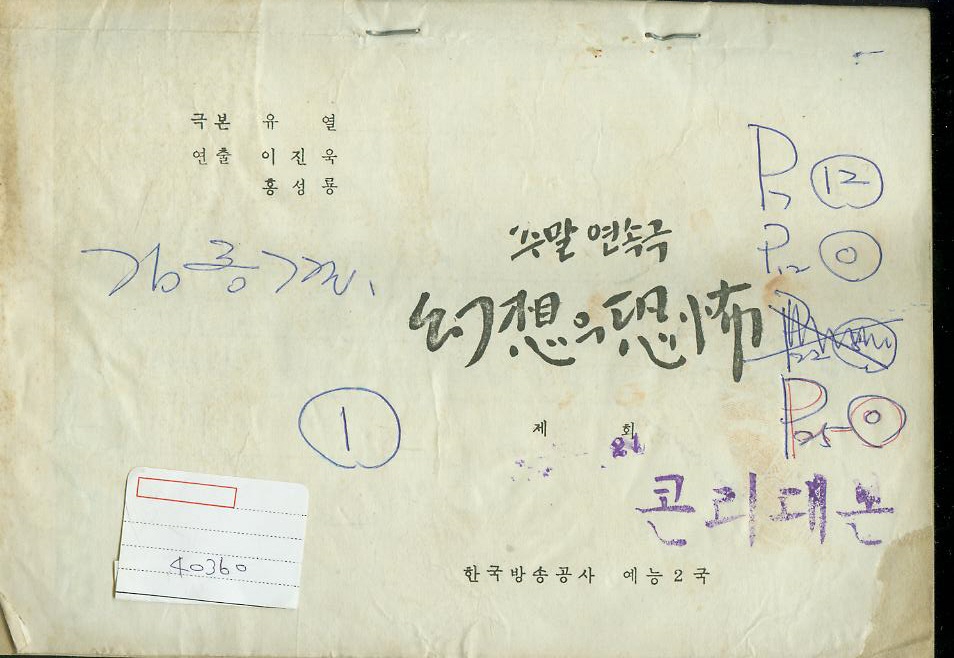 극본 유 열
연출 이진욱
홍성룡
주말 연속극
幻想의 恐怖
제 회
콘티대본
한국방송공사 예능2국
1
40360
P7 12
P12 0
P25 0